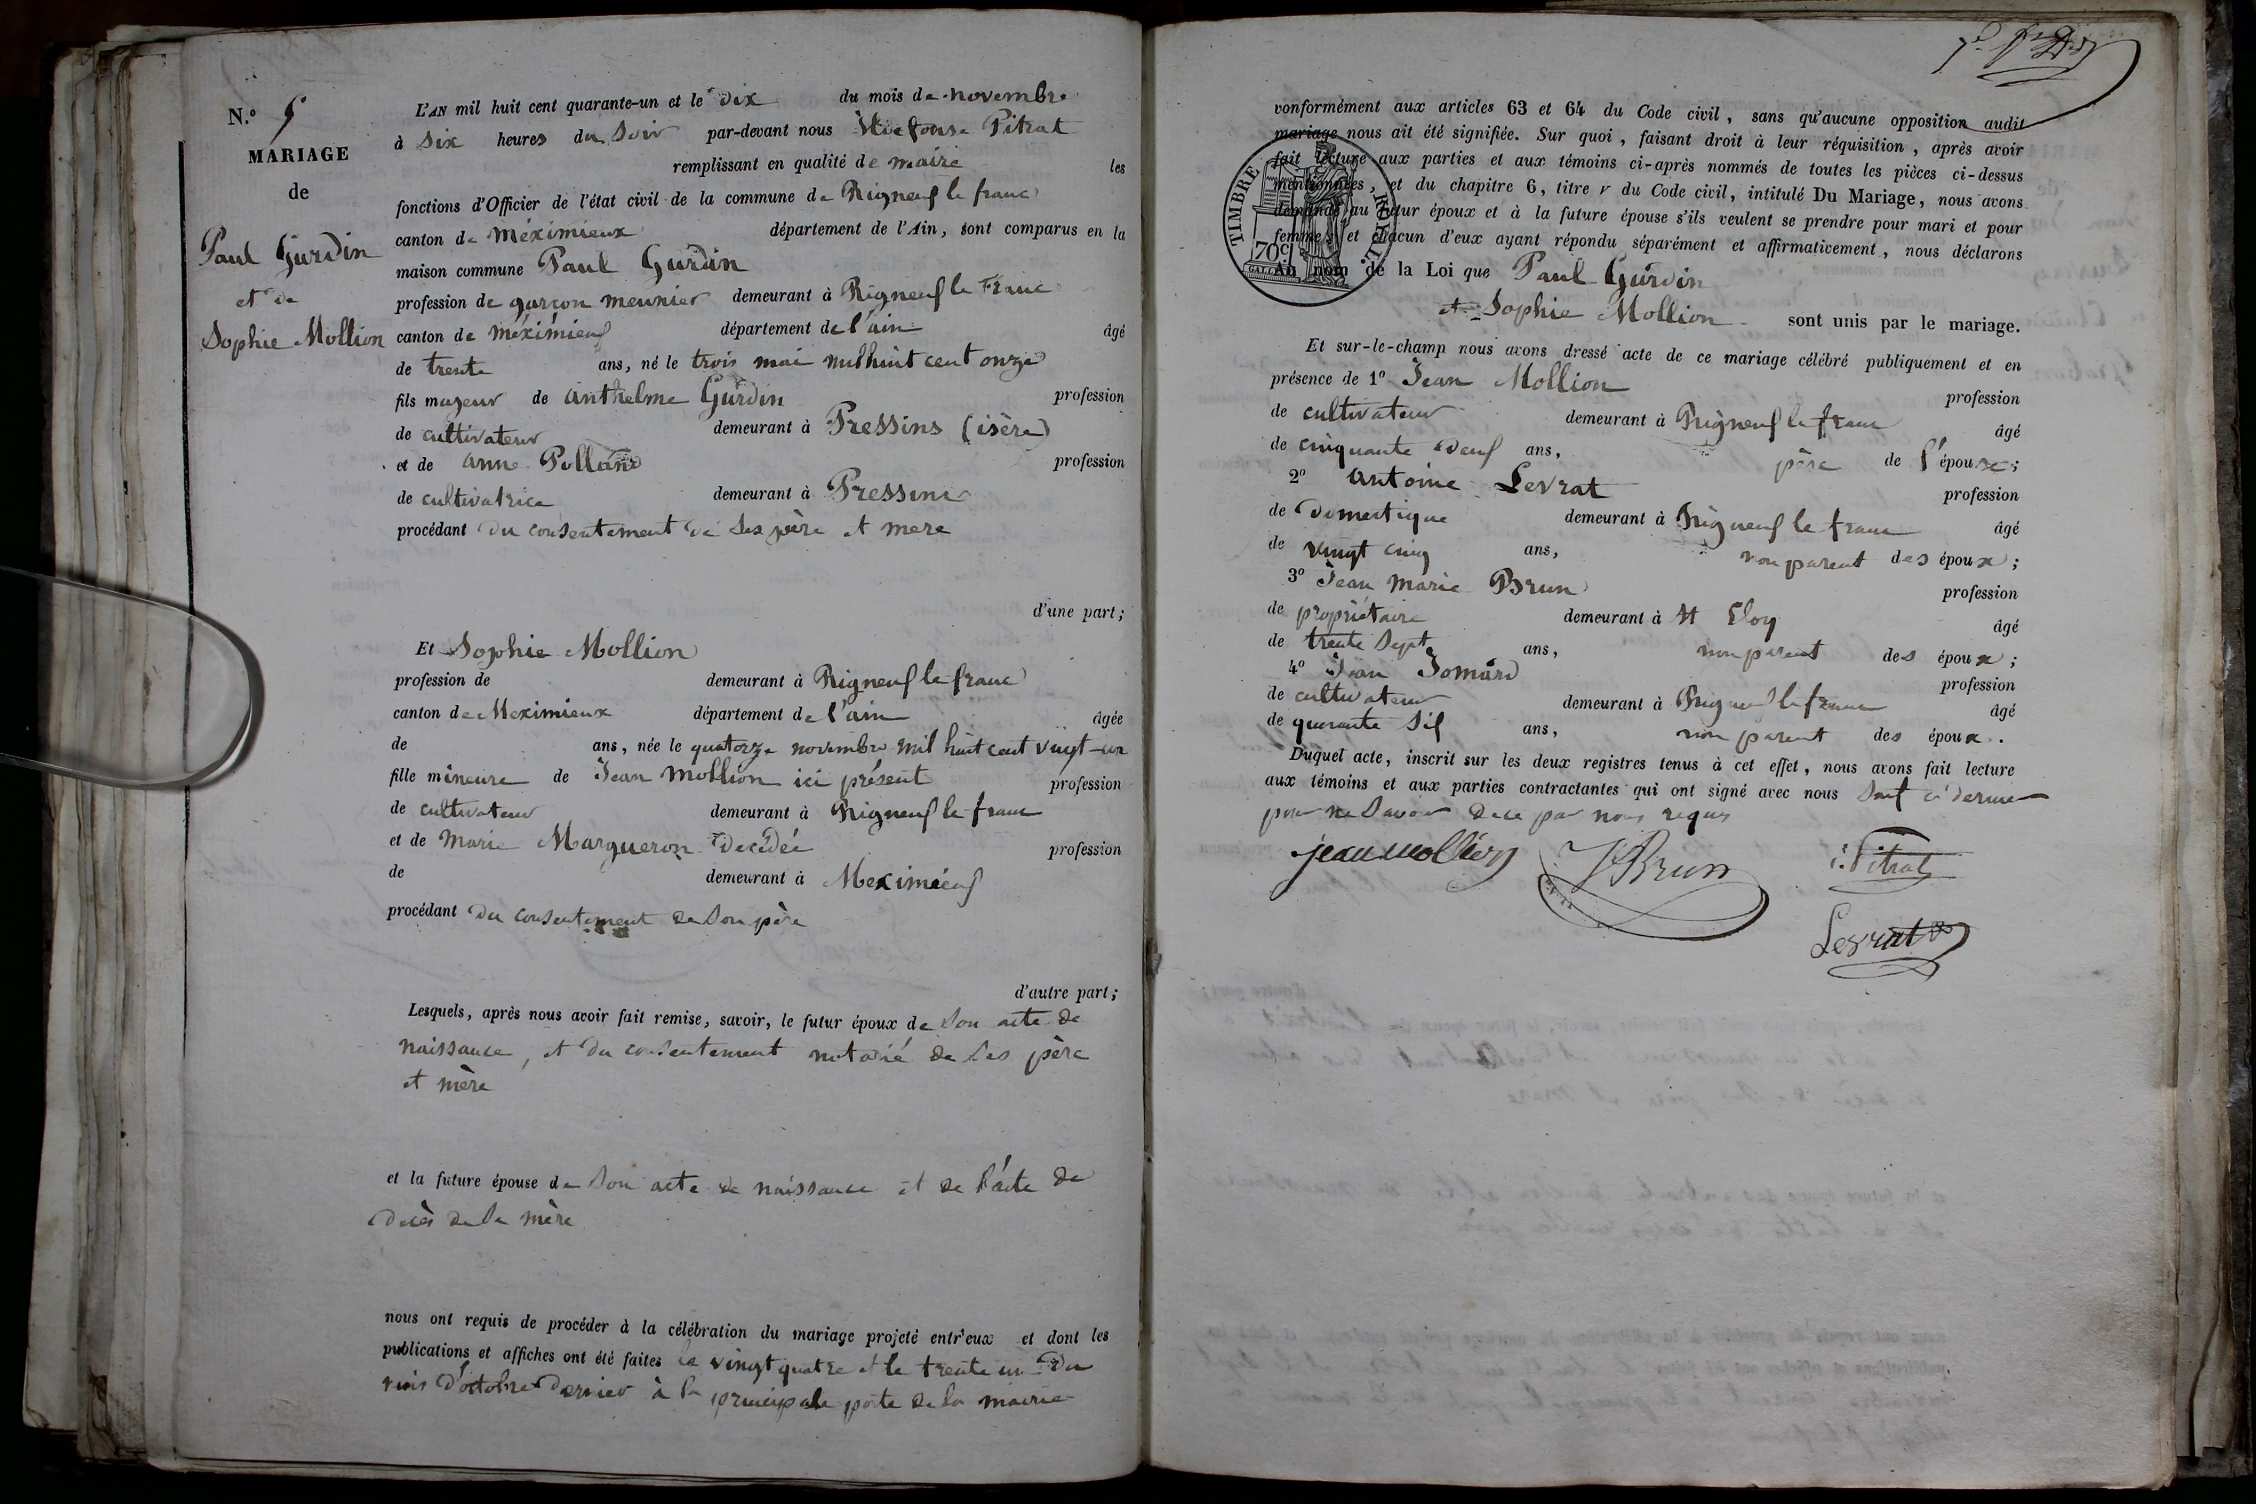 N.o 5
MARIAGE
de
Paul Gurdin
et de
Sophie Mollion
L'AN mil huit cent quarante-un et le dix du mois de novembre
à six heures du soir par-devant nous Pitrat
remplissant en qualité de maire les
fonctions d'Officier de l'état civil de la commune de Rigneuf le franc
canton de méximieux département de l'Ain, sont comparus en la
maison commune Paul Gurdin
profession de garçon meunier demeurant à Rigneuf le Franc
canton de méximieuf département de l'ain âgé
de trente ans, né le trois mai mil huit cent onze
fils majeur de anthelme Gurdin profession
de cultivateur demeurant à Pressins (isère)
et de anne profession
de cultivatrice demeurant à Pressins
procédant du consentement de ses père et mere
d'une part;
Et Sophie Mollion
profession de demeurant à Rigneuf le franc
canton de Meximieux département de l'ain âgée
de ans, née le quatorze novembre mil huit cent vingt-un
fille mineure de Jean Mollion ici présent profession
de cultivateur demeurant à Rigneuf le franc
et de Marie Margueron décédée profession
de demeurant à Meximieuf
procédant du consentement de son père
d'autre part;
Lesquels, après nous avoir fait remise, savoir, le futur époux de son acte de
naissance, et du consentement notarié de ses père
et mère
et la future épouse de son acte de naissance et de l'acte de
décès de sa mère
nous ont requis de procéder à la célébration du mariage projeté entr'eux et dont les
publications et affiches ont été faites le vingt quatre et le trente un du
mois d'octobre dernier à la principale porte de la mairie
conformément aux articles 63 et 64 du Code civil, sans qu'aucune opposition audit
mariage nous ait été signifiée. Sur quoi, faisant droit à leur réquisition, après avoir
fait lecture aux parties et aux témoins ci-après nommés de toutes les pièces ci-dessus
mentionnées, et du chapitre 6, titre v du Code civil, intitulé Du Mariage, nous avons
demandé au futur époux et à la future épouse s'ils veulent se prendre pour mari et pour
femme; et chacun d'eux ayant répondu séparément et affirmativement, nous déclarons
Au nom de la Loi que Paul Gurdin
et Sophie Mollion sont unis par le mariage.
TIMBRE ROYAL.
70c
Et sur-le-champ nous avons dressé acte de ce mariage célébré publiquement et en
présence de 1o Jean Mollion profession
de cultivateur demeurant à Rigneuf le franc âgé
de cinquante neuf ans, père de l'épouse;
2o antoine Levrat profession
de domestique demeurant à Rigneuf le franc âgé
de vingt cinq ans, non parent des époux;
3o Jean Marie Brun profession
de propriétaire demeurant à St Eloy âgé
de trente sept ans, non parent des époux;
4o Jean Jomard profession
de cultivateur demeurant à Rigneuf le franc âgé
de quarante six ans, non parent des époux.
Duquel acte, inscrit sur les deux registres tenus à cet effet, nous avons fait lecture
aux témoins et aux parties contractantes qui ont signé avec nous sauf ce dernier
pour ne savoir de ce par nous requis
jean mollion
J Brun
i. Pitrat
Levrat